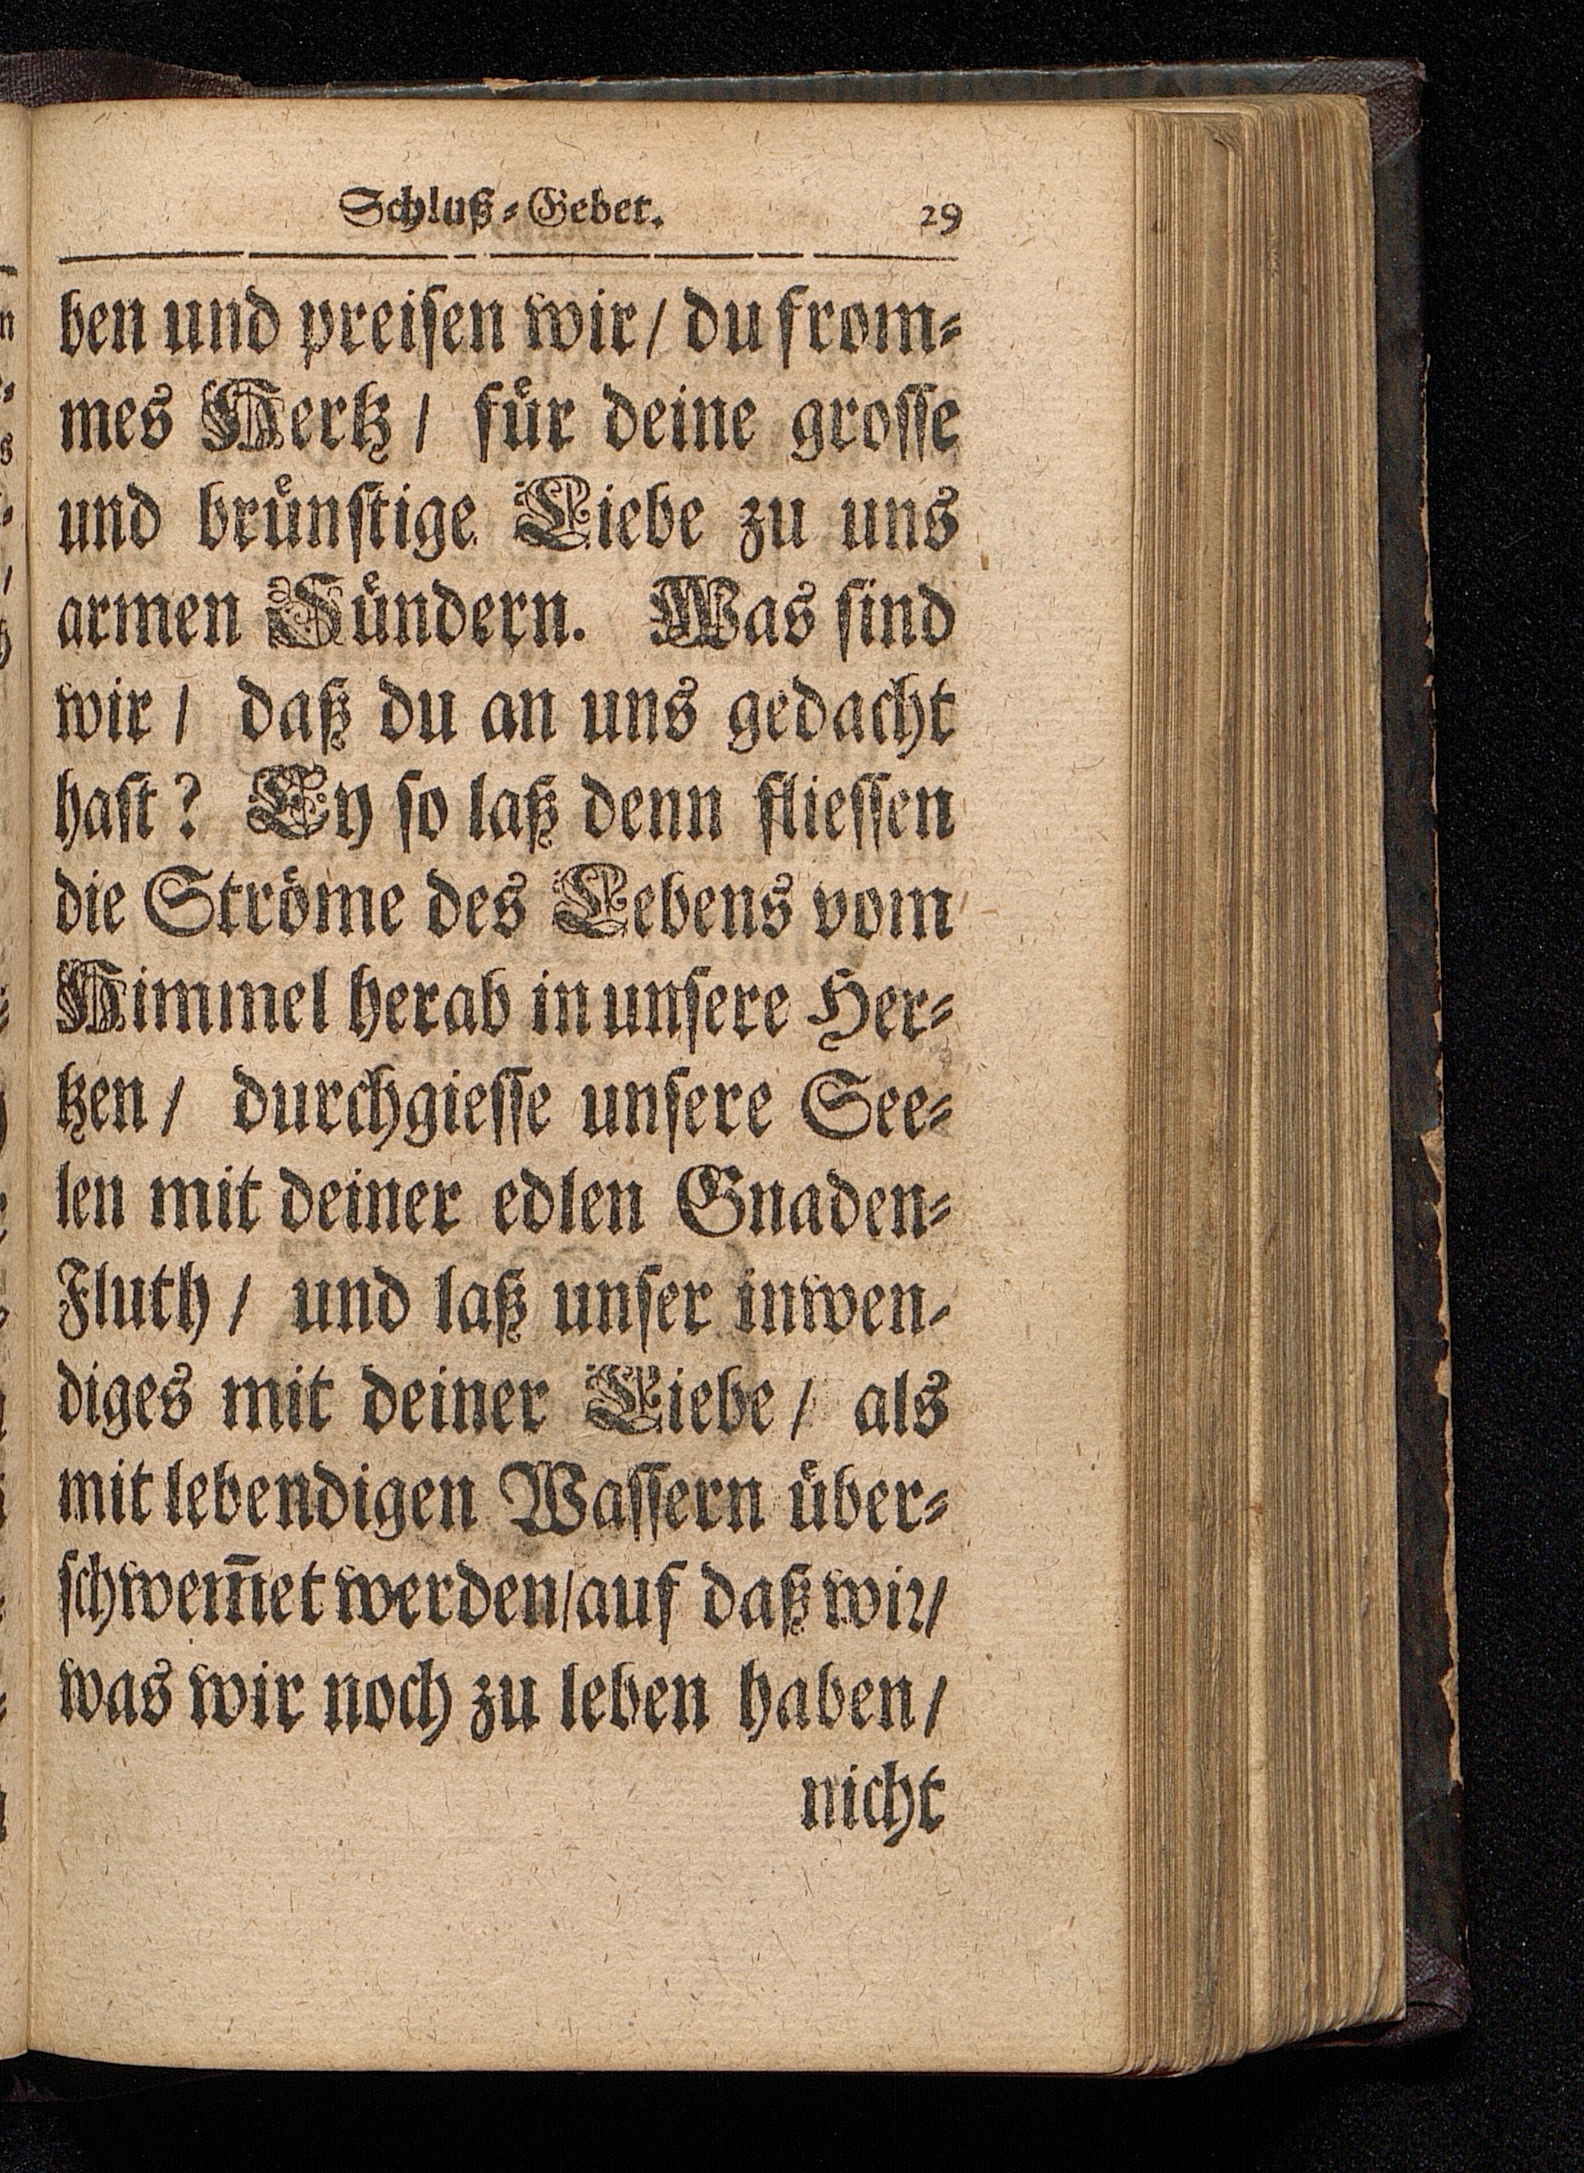 Schluß-Gebet. 29
ben und preisen wir/ du from-
mes Hertz/ für deine grosse
und brünstige Liebe zu uns
armen Sündern. Was sind
wir/ daß du an uns gedacht
hast? Ey so laß denn fliessen
die Ströme des Lebens vom
Himmel herab in unsere Her-
tzen/ durchgiesse unsere See-
len mit deiner edlen Gnaden-
Fluth/ und laß unser inwen-
diges mit deiner Liebe/ als
mit lebendigen Wassern über-
schwem̅et werden/auf daß wir/
was wir noch zu leben haben/
nicht